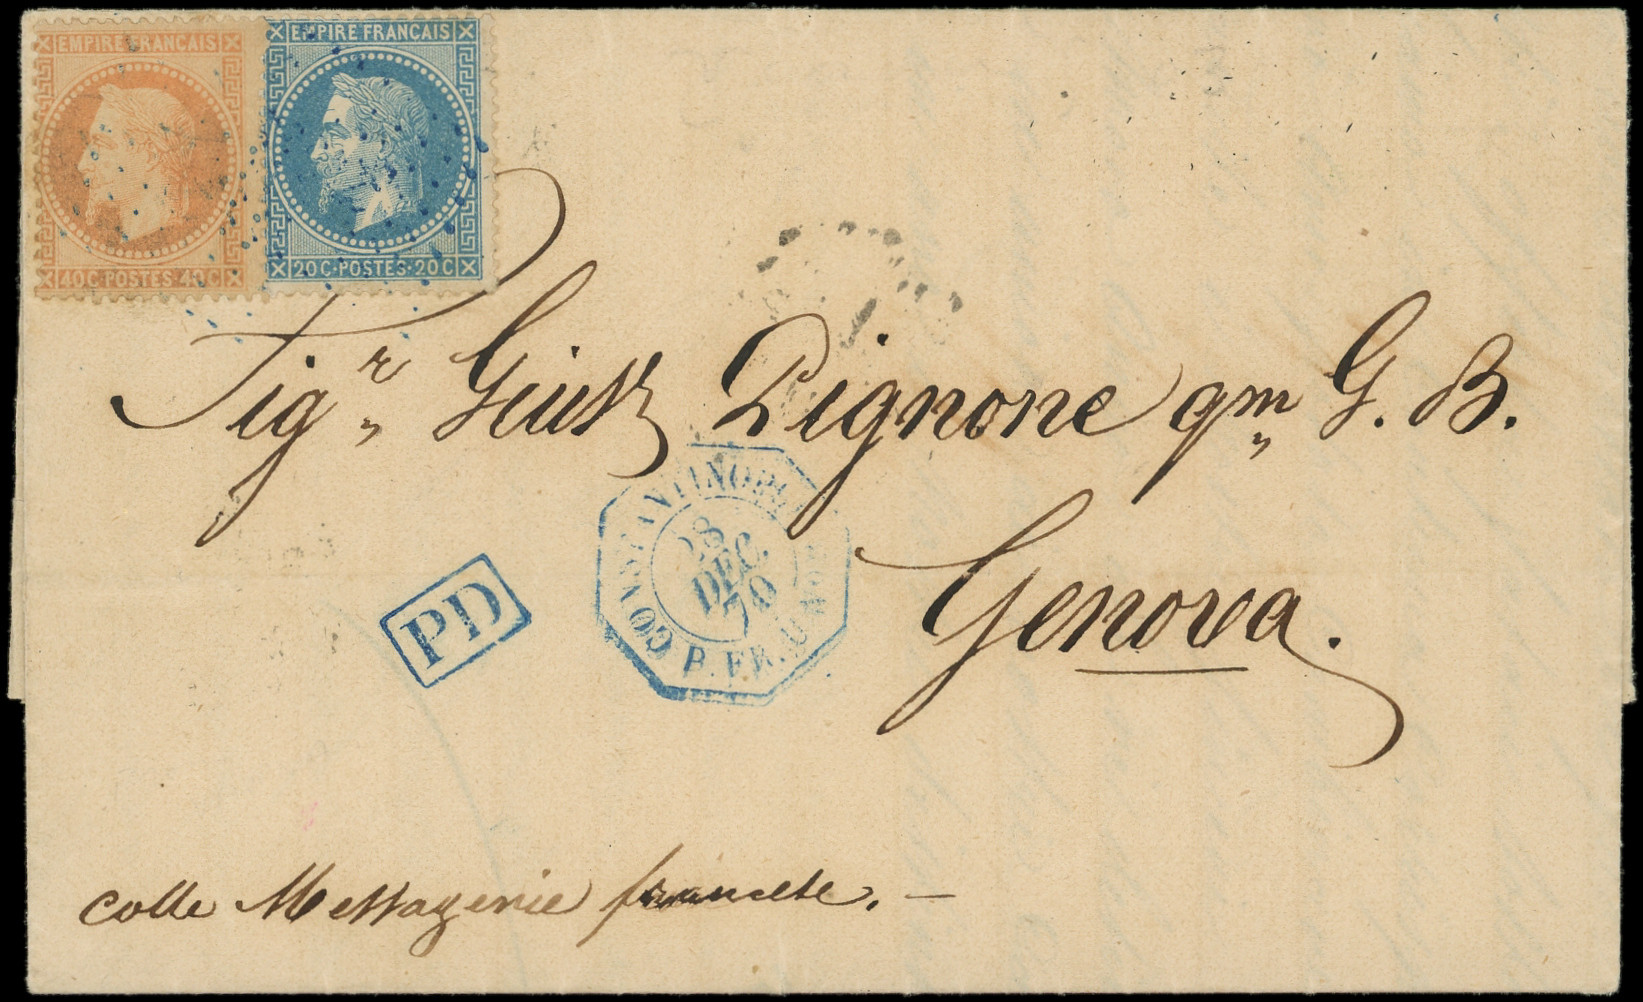 EMPIRE FRANÇAIS
40C·POSTES·40C
EMPIRE FRANÇAIS
20C·POSTES·20C
Sig.r Pignone qm G. B.
Genova.
PD
CONSTANTINOPLE
28
DEC.
70
colle Messagerie francese. —